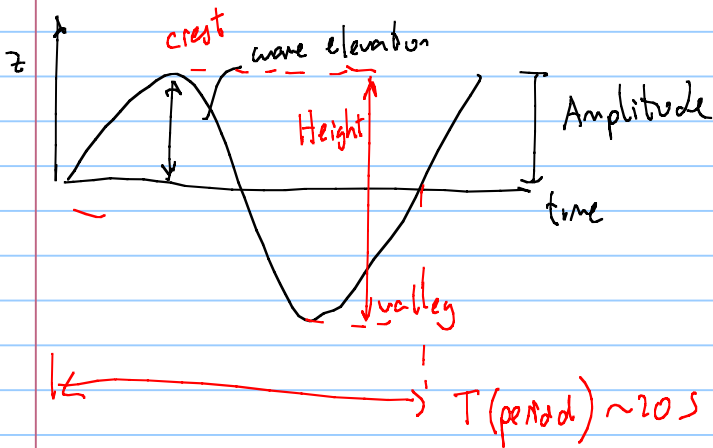 crest
wave elevation
z
Height
Amplitude
time
valley
T (period) ~20 s